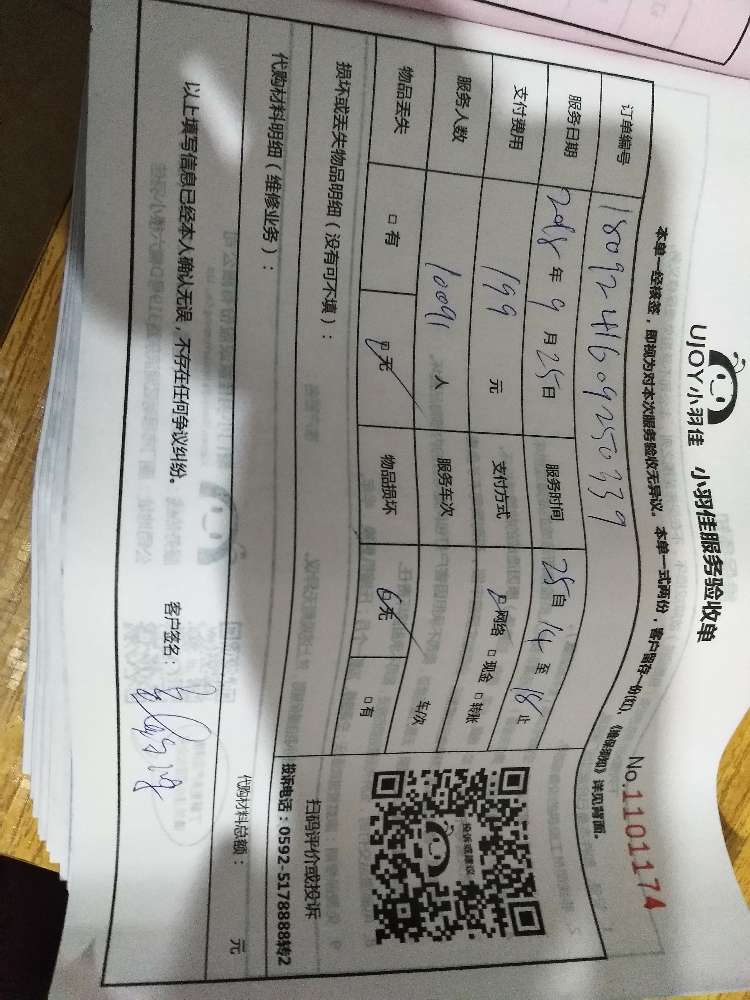 UJOY小羽佳 小羽佳服务验收单
No.1101174
本单一经核签，即视为对本次服务验收无异议。本单一式两份，客户留存一份(红)，《维保须知》详见背面。
订单编号 1809241609250339
服务日期 2018年9月25日 服务时间 25自14至18止
支付费用 199 元 支付方式 ☑网络 □现金 □转账
服务人数 10091 人 服务车次 车/次
物品丢失 □有 ☑无 物品损坏 ☑无 □有
损坏或丢失物品明细（没有可不填）：
投诉或建议
扫码评价或投诉
投诉电话：0592-5178888转2
代购材料明细（维修业务）：
代购材料总额： 元
以上填写信息已经本人确认无误，不存在任何争议纠纷。 客户签名：